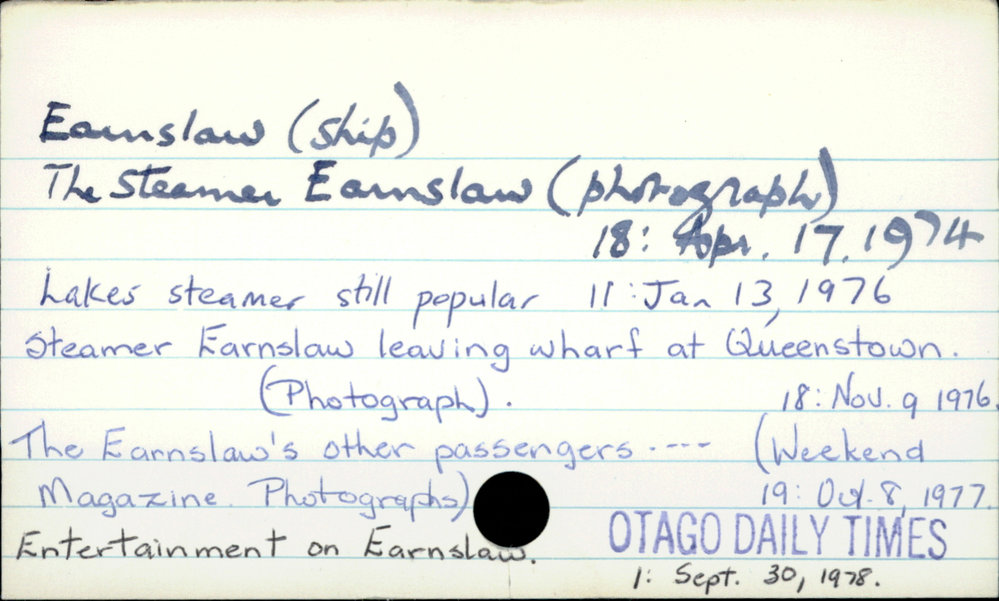 Earnslaw (ship)
The Steamer Earnslaw (photograph)
18: Apr. 17, 1974
Lakes steamer still popular 11: Jan 13, 1976
Steamer Earnslaw leaving wharf at Queenstown.
(Photograph). 18: Nov. 9 1976.
The Earnslaw's other passengers . --- (Weekend
Magazine. Photographs) 19: Oct. 8, 1977.
Entertainment on Earnslaw. OTAGO DAILY TIMES
1: Sept. 30, 1978.